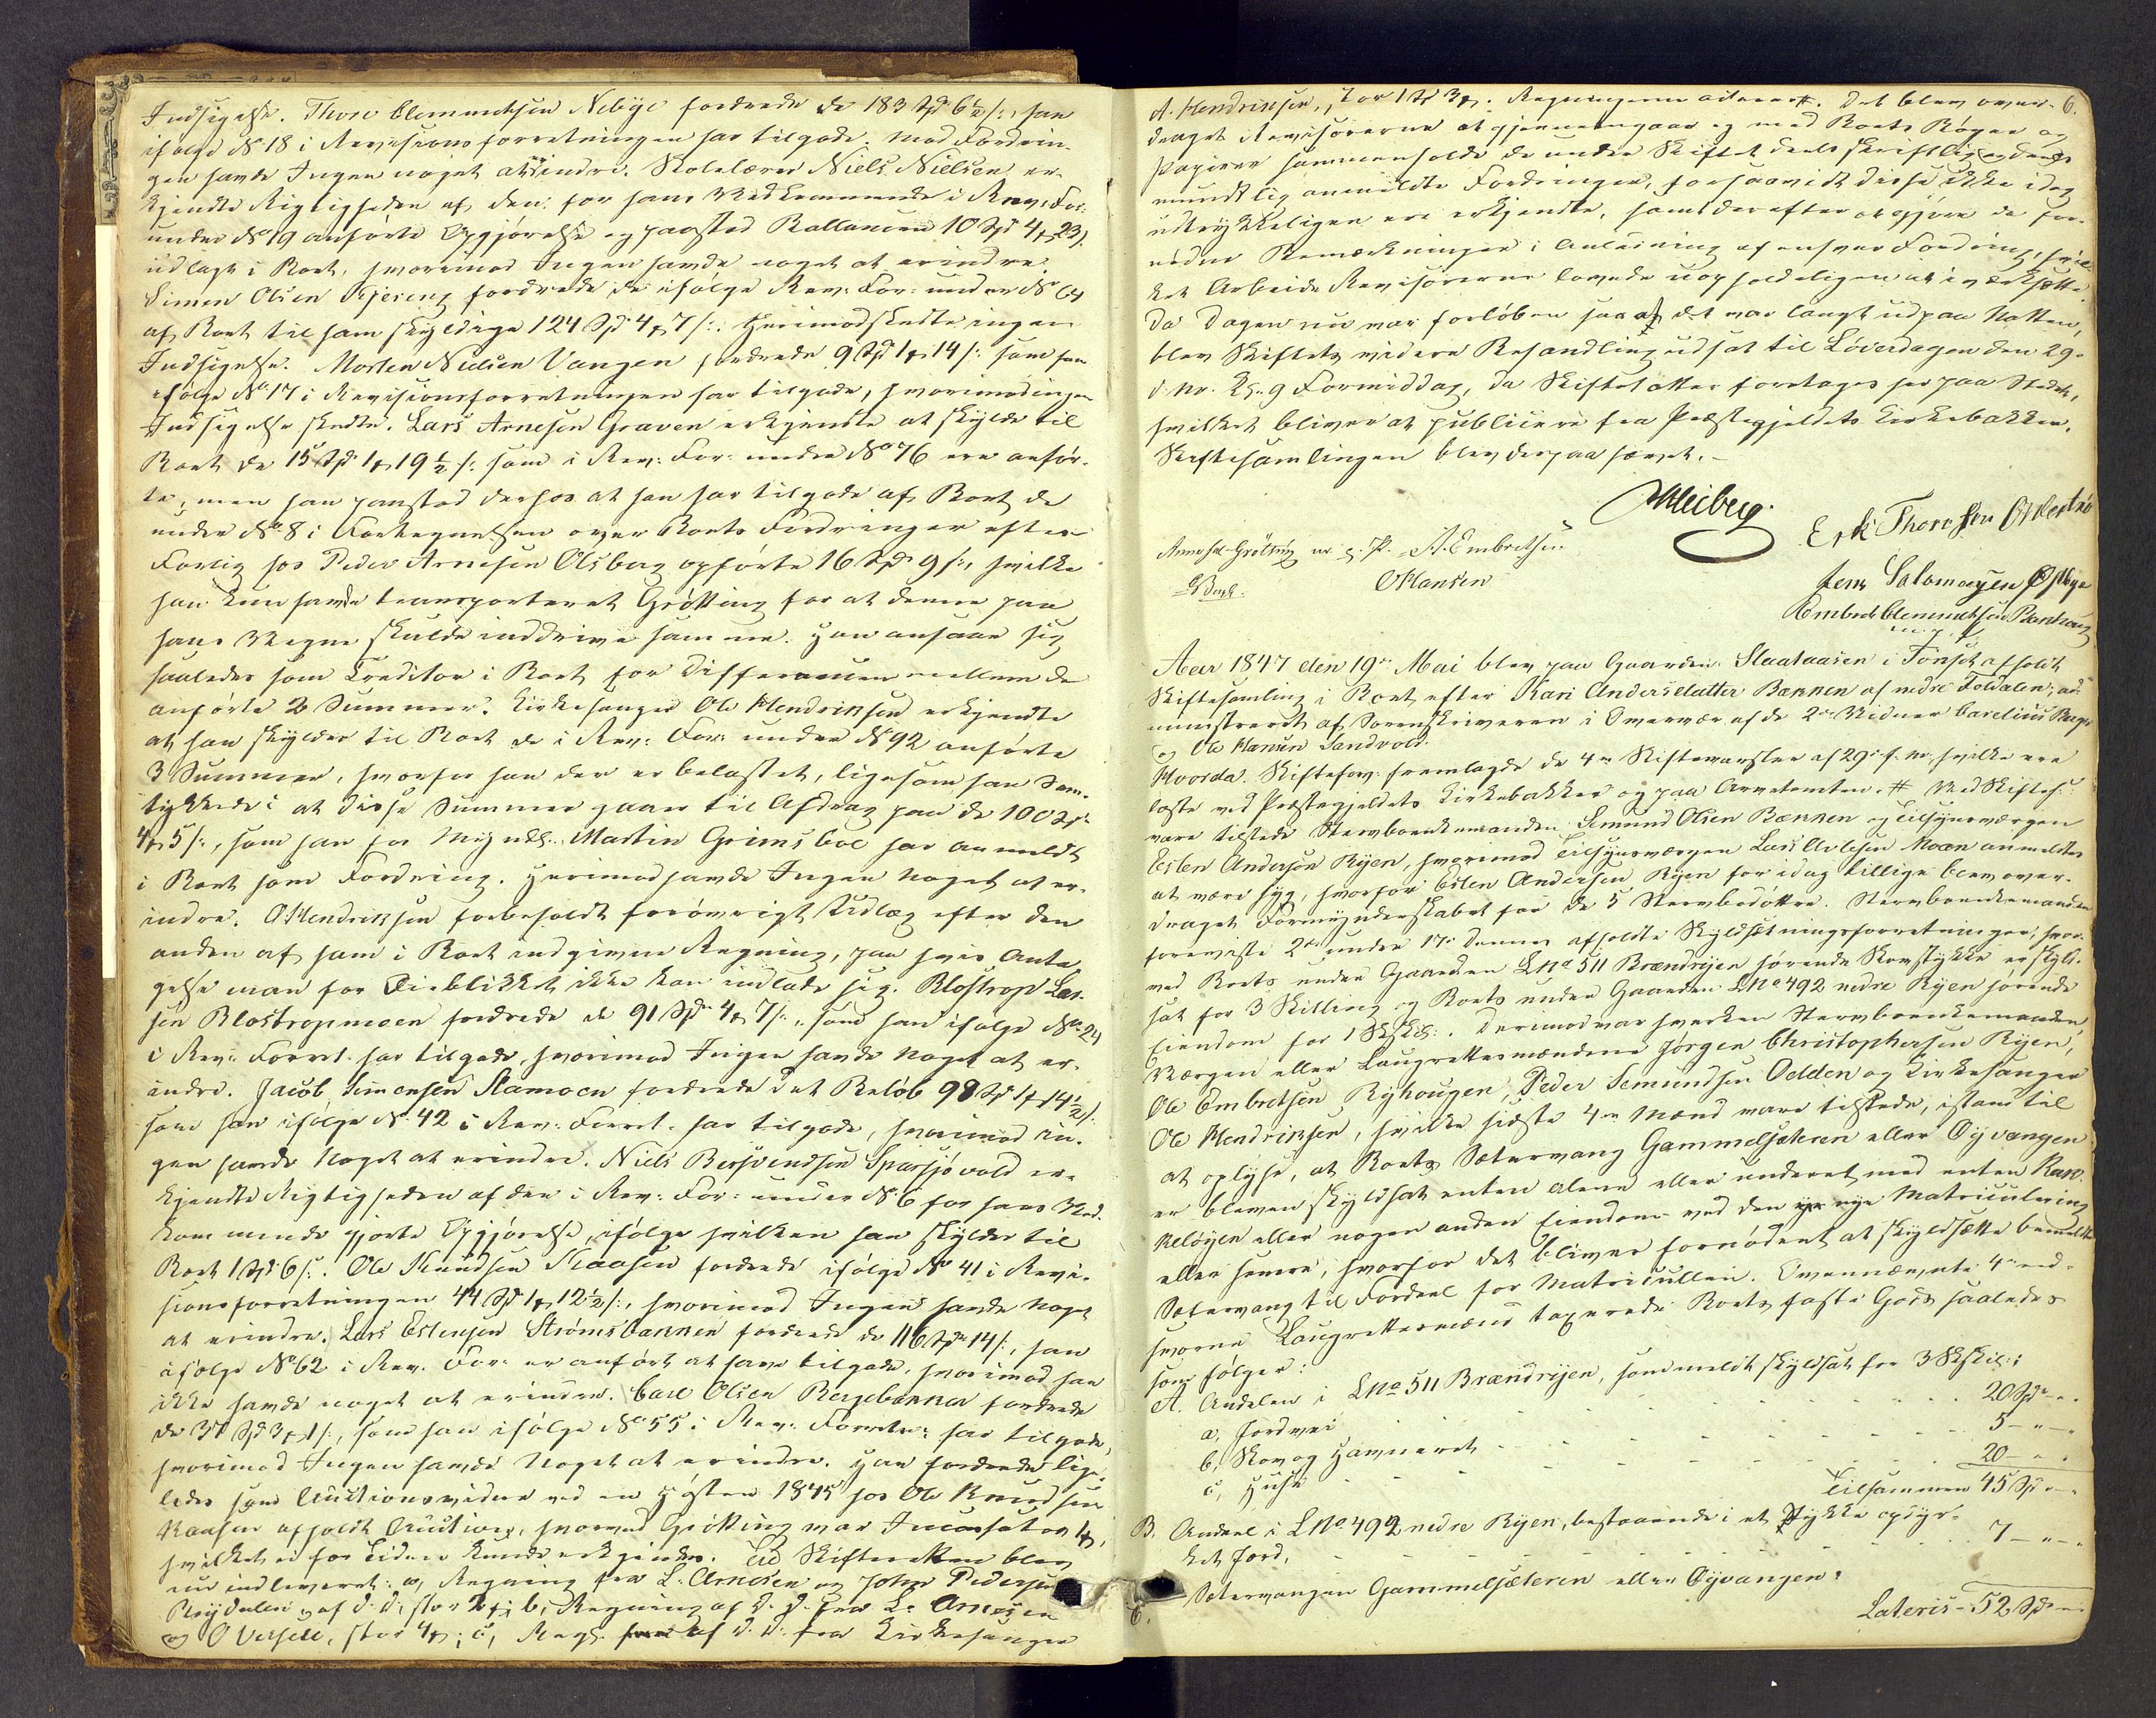 Indsigelse. Thore Clemmetsen Nebye fordrede de 183 Spd 6½ s:, han
ifølge No 18 i Revisionsforretningen har tilgode; mod Fordrin-
gen havde Ingen noget at erindre. Skolelærer Niels Nielsen er-
kjendte Rigtigheden af den for hans Vedkommende i Rev: For:
under No 19 anførte Opgjørelse og paastod Ballancen 10 Spd 4 23
udlagt i Boet, hvorimod Ingen havde noget at erindre.
Simen Olsen fordrede de ifølge Rev: For: under No 64
af Boet til ham skyldige 124 Spd 4 7 s:. Herimod skedte ingen
Indsigelse. Morten Nielsen Vangen fordrede 9 Spd 1 14 s: som han
ifølge No 17 i Revisionsforretningen har tilgode, hvorimod ingen
Indsigelse skedte. Lars Arnesen Graven erkjendte at skylde til
Boet de 15 Spd 1 19½ s: som i Rev: For: under No 76 ere anfør-
te, men han paastod derhos at han har tilgode af Boet de
under No 8 i Fortegnelsen over Boets Fordringer efter
Forlig hos Peder Arnesen Olsberg opførte 16 Spd 9 s:, hvilke
han kun havde transporteret Grøtting for at denne paa
hans Vegne skulde inddrive samme. Han ansaae sig
saaledes som Creditor i Boet for Differancen mellem de
anførte 2 Summer. Kirkesanger Ole Hendriksen erkjendte
at han skylder til Boet de i Rev: For: under No 92 anførte
3 Summer, hvorfor han der er belastet, ligesom han Sam-
tykkede i at disse Summer gaaer til Afdrag paa de 100 Spd
4 5 s:, som han for Martin Grimsboe har anmeldt
i Boet som Fordring. Herimod havde Ingen Noget at er-
indre. O Hendriksen forbeholdt forøvrigt Udlæg efter den
anden af ham i Boet indgivne Regning, paa hvis Anta-
gelse man for Øieblikket ikke kan indlade sig. Blostrop Lar-
sen Blostropmoen fordrede de 91 Spd 4 7 s:, som han ifølge No 24
i Rev: Forret. har tilgode, hvorimod Ingen havde Noget at er-
indre. Jacob Simensen Stamoen fordrede det Beløb 98 Spd 1 14½ s:
som han ifølge No 42 i Rev: Forret. har tilgode, hvorimod In-
gen havde Noget at erindre. Niels Bersvendsen Sparsjøvold er-
kjendte Rigtigheden af den i Rev: For: under No 6 for hans Ved-
kommende gjorte Opgjørelse, ifølge hvilken han skylder til
Boet 1 Spd 6 s:. Ole Knudsen Kaasen fordrede ifølge No 41 i Revi-
sionsforretningen 44 Spd 1 12½ s:, hvorimod Ingen havde Noget
at erindre. Lars Estensen Strømsbakken fordrede de 116 Spd 14 s:, han
ifølge No 62 i Rev. For: er anført at have tilgode, hvorimod han
ikke havde noget at erindre. Carl Olsen fordrede
de 37 Spd 3 1 s:, som han ifølge No 55 i Rev: Forretn: har tilgode,
hvorimod Ingen havde Noget at erindre. Han fordrede lige-
ledes som Auctionsvidne ved en Høsten 1845 hos Ole Knudsen
Kaasen afholdt Auction, hvorved Grøtting var Incassator 1
hvilket ei for Tiden kunde erkjendes. Til Skifteretten blev
nu indleveret: a, Regning fra L: Arnesen og John Pedersen
af D. D. stor 2 b, Regning af D. D. fra L: Arnesen
og O stor 4; c, Regn. af D. D. fra Kirkesanger
A. Hendriksen, stor 1 Spd 3. Regningerne Det blev over- 6.
draget Revisorerne at gjennemgaae og med Boets Bøger og
Papirer sammenholde de under Skiftet deels skriftlig og deels
mundtlig anmeldte Fordringer, forsaavidt disse ikke idag
udtrykkeligen ere erkjendte, samt derefter at gjøre de for-
nødne Bemærkninger i Anledning af enhver Fordring, hvil-
ket Arbeide Revisorerne lovede uopholdeligen at iværksætte.
Da Dagen nu var forløben saa at det var langt ud paa Natten,
blev Skiftets videre Behandling udsat til Løverdagen den 29.
d. M. Kl. 9 Formiddag, da Skiftet atter foretages her paa Stedet,
hvilket bliver at publicere fra Præstegjeldets Kirkebakker.
Skiftesamlingen blev derpaa hævet.
Meiberg.
Erik Thoresen
A. Embretsen
OHansen
Jens Salomonsen
Embret Clemmetsen
m. f. P.
Aar 1847 den 19de Mai blev paa Gaarden Slaataasen i Tønset afholdt
Skiftesamling i Boet efter Kari Andersdatter Bakken af nedre Foldalen, ad-
ministreret af Sorenskriveren i Overvær af de 2de Vidner Carelius Berg
og Ole Hansen Sandvold.
Hvorda: Skifteforv. fremlagde de 4re Skiftevarsler af 29de f. M., hvilke ere
læste ved Præstegjeldets Kirkebakker og paa Arvetomten. # Ved Skiftet
vare tilstede Stervboenkemanden Semund Olsen Bakken og Tilsynsværgen
Esten Andersen Ryen, hvorimod Tilsynsværgen Lars Moen anmeldtes
at være syg, hvorfor Esten Andersen Ryen for idag tillige blev over-
draget Formynderskabet for de 5 Stervbodøttre. Stervboenkemanden
foreviste 2de under 17de Dennes afholdte Skyldsætningsforretninger, hvor-
ved Boets under Gaarden LNo 511 Brændryen hørende Skovstykke er skyld-
sat for 3 Skilling og Boets under Gaarden LNo 492 nedre Ryen hørende
Eiendom for 1 Skill:. Derimod var hverken Stervboenkemanden,
Værgen eller Laugrettesmændene Jørgen Christophersen Ryen,
Ole Embretsen Ryhougen, Peder Semundsen Oelden og Kirkesanger
Ole Hendriksen, hvilke sidste 4re Mænd vare tilstede, istand til
at oplyse, at Boets Sætervang Gammelsæteren eller Øyvangen
er bleven skyldsat enten alene eller underet med enten
eller nogen anden Eiendom ved den nye Matriculering
eller senere, hvorfor det bliver fornødent at skyldsætte bemeldte
Sætervang til Fordeel for Matricullen. Ovennævnte 4re ed-
svorne Laugrettesmænd taxerede Boets faste Gods saaledes
som følger:
A. Andelen i LNo 511 Brændryen, som meldt skyldsat for 3 Skill:
a, Jordvei 20 Spd "
b, Skov og Havneret 5 - " -
c, Huse 20 - " -
Tilsammen 45 Spd
B. Andeel i LNo 492 nedre Ryen, bestaaende i et Stykke opdyr-
ket Jord, 7 - " -
C. Sætervangen Gammelsæteren eller Øyvangen.
Lateris - 52 Spd